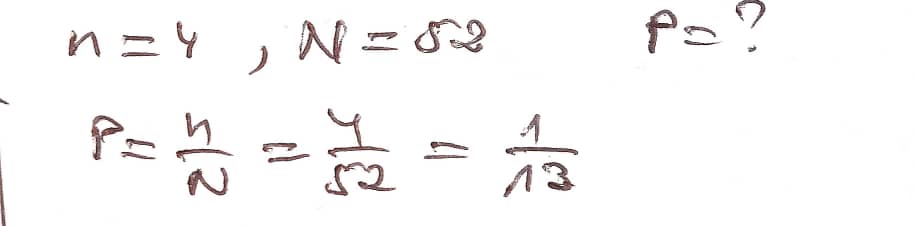 n = 4 , N = 52 P = ?
P = n/N = 4/52 = 1/13